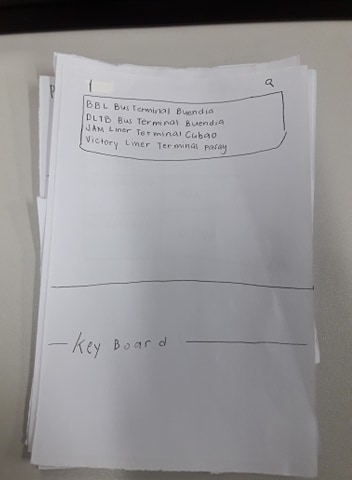 BBL Bus Terminal Buendia
DLTB Bus Terminal Buendia
JAM Liner Terminal Cubao
Victory Liner Terminal Pasay
Key Board